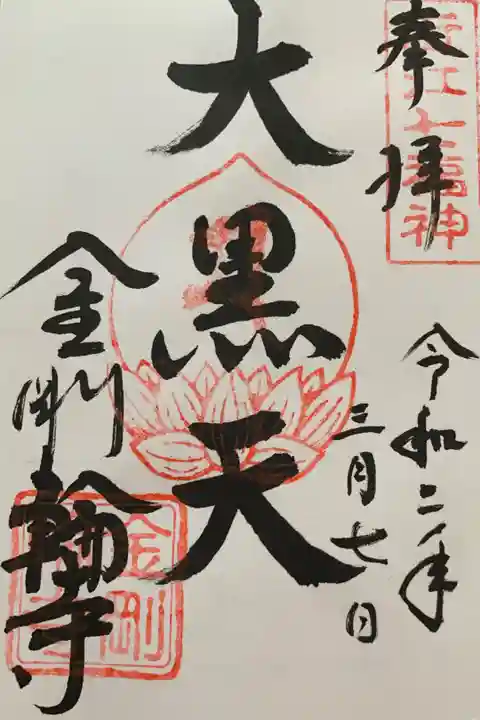 奉拝
近江七福神
令和二年
三月七日
大黒天
金剛輪寺